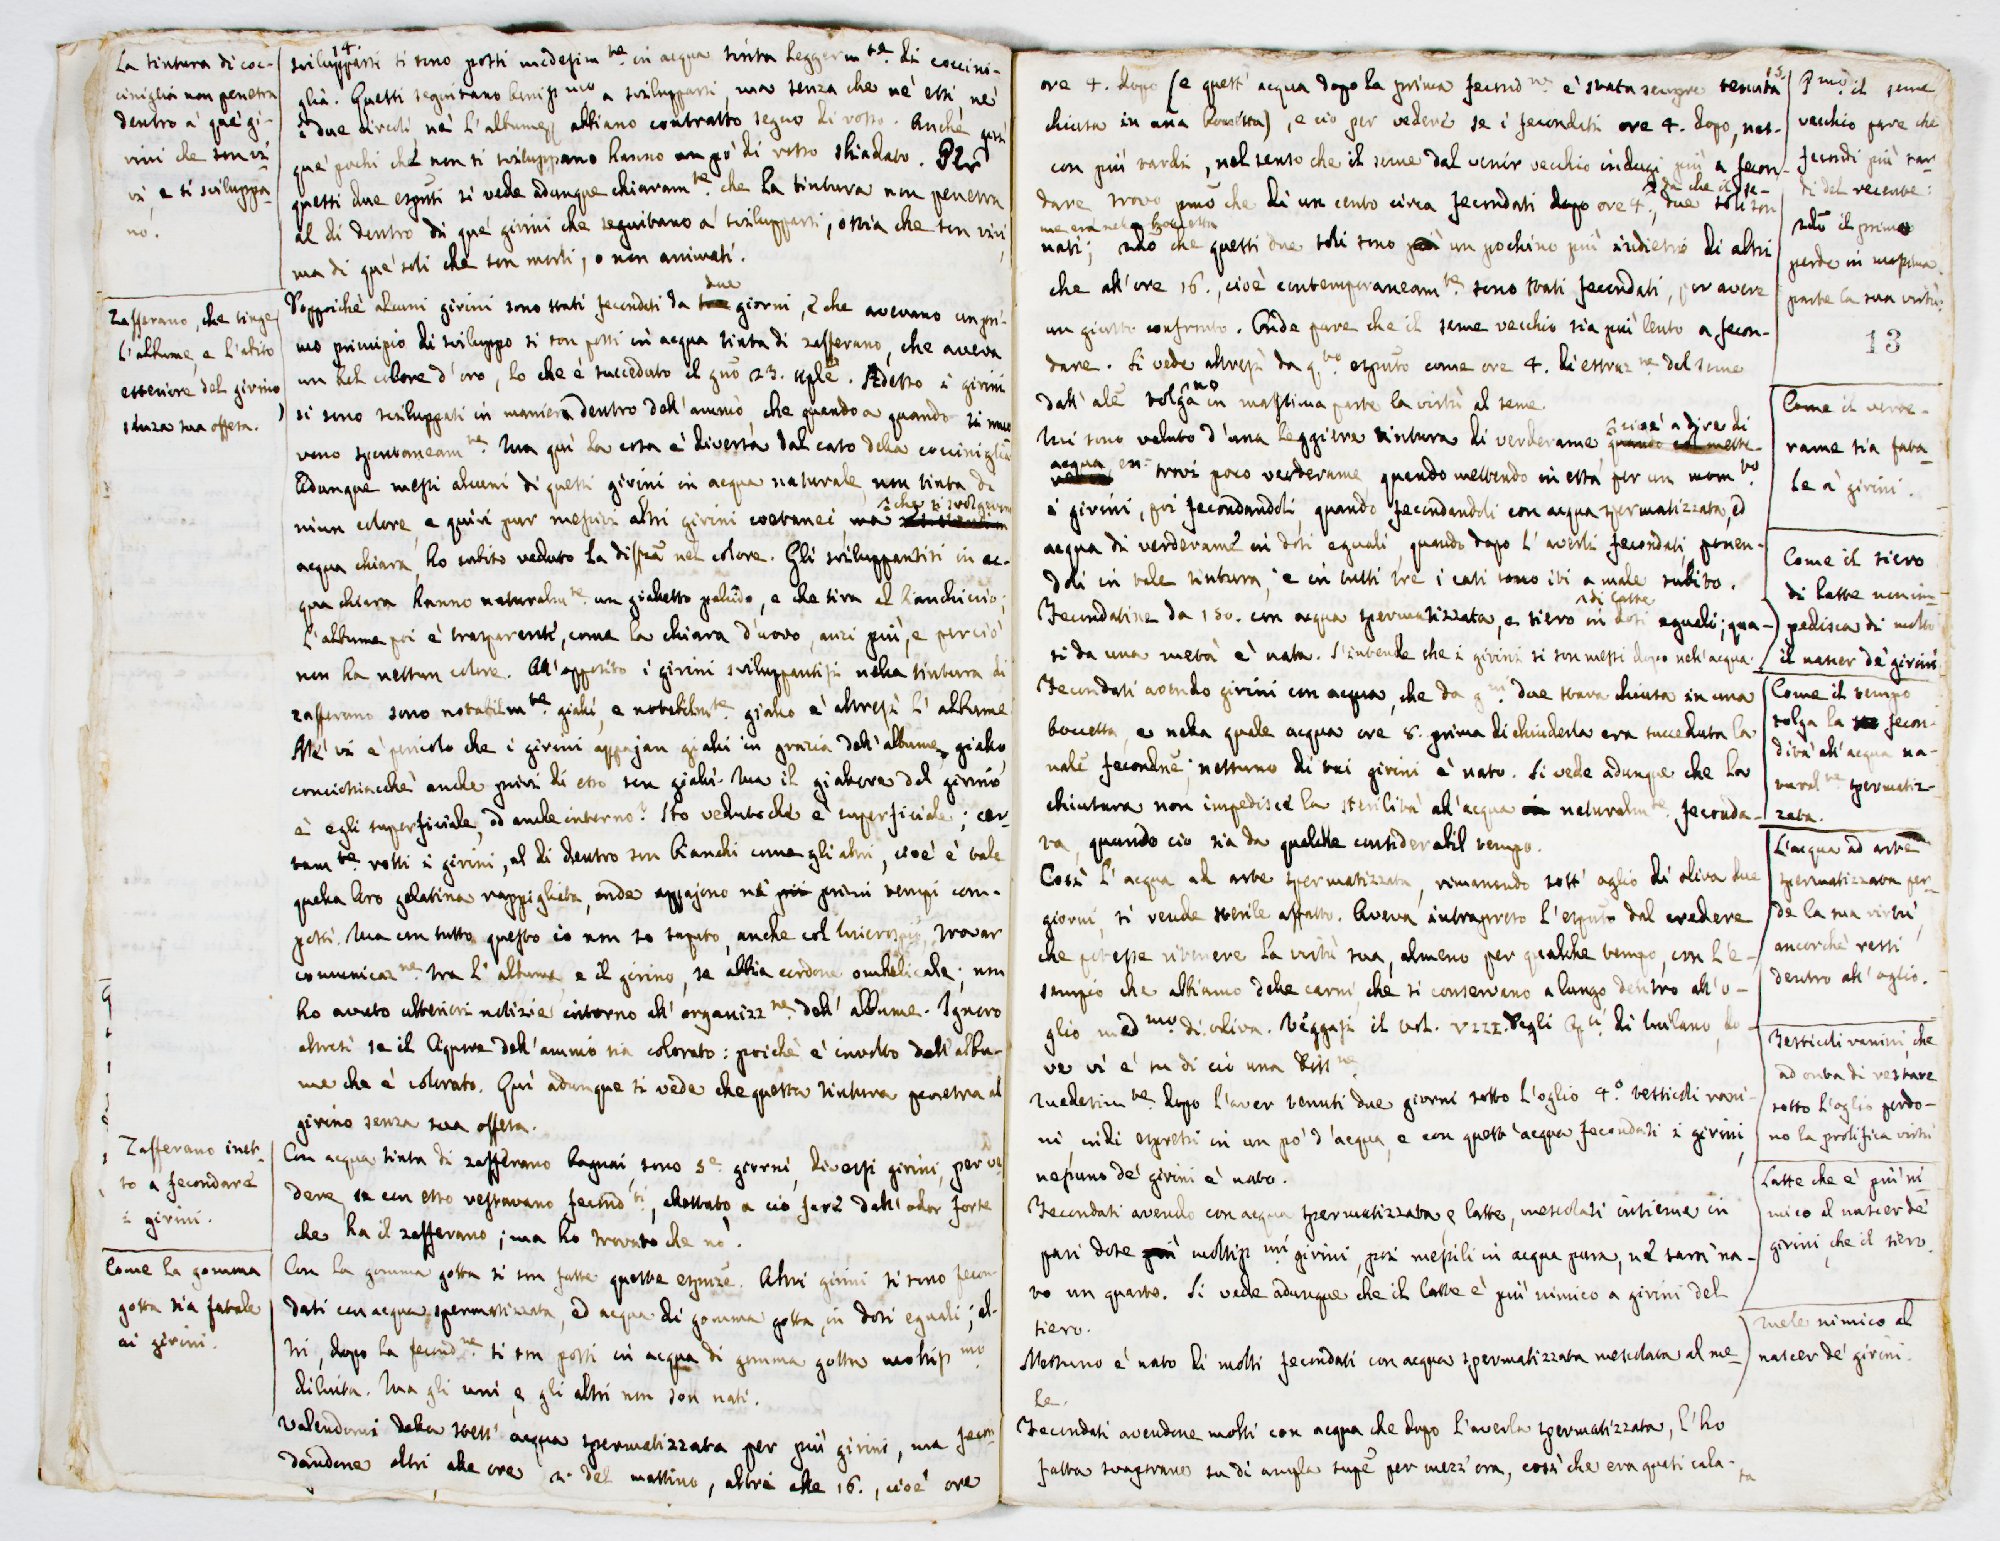 14.
La tintura di coc-
ciniglia non penetra
dentro a' que' gi-
rini che son vi
vi, e si sviluppa-
no.
Zafferano, che tinge
l'albume, e l'abito
esteriore del girino
senza sua offesa.
Zafferano inet-
to a fecondare
i girini.
Come la gomma
gotta sia fatale
ai girini.
svilupparsi si sono posti medesim.te in acqua tinta leggerm.te di coccini-
glia. Questi seguitano beniss.mo a svilupparsi, ma senza che nè essi, nè
i due circoli nè l'albume abbiano contratto segno di rosso. Anche
que' pochi che non si sviluppano hanno un pò di rosso sbiadato. Per
questi due esputi si vede adunque chiaram.te che la tintura non penetra
al di dentro di que' girini che seguitano a' svilupparsi, ossia che son vivi,
ma di que' soli che son morti, o non animati.
Poppoichè alcuni girini sono stati fecondati da due giorni, e che avevano un pri-
mo principio di sviluppo si son posti in acqua tinta di zafferano, che aveva
un bel colore d'oro, lo che è succeduto il gno 23. aple. Adesso i girini
si sono sviluppati in maniera dentro dell'amnio che quando a quando si muo
vono spontaneam.te. Ma qui la cosa è diversa dal caso della cocciniglia
Adunque messi alcuni di questi girini in acqua naturale, non tinta di
niun colore, e quivi pur messivi altri girini coetanei, che si svolgevan
acqua chiara, ho subito veduto la diffza nel colore. Gli sviluppantisi in ac-
qua chiara hanno naturalm.te un gialletto pallido, e che tira al bianchiccio;
l'albume poi è trasparente, come la chiara d'uovo, anzi più, e perciò
non ha nessun colore. All'opposito i girini sviluppantisi nella tintura di
zafferano sono notabilm.te gialli, e notabilm.te giallo è altresì l'albume
Nè vi è pericolo che i girini appajan gialli in grazia dell'albume giallo,
conciossiacchè anche privi di esso son gialli. Ma il giallore del girino
è egli superficiale, od anche interno? Ho veduto che è superficiale; cer-
tam.te rotti i girini, al di dentro son bianchi come gli altri, cioè è tale
quella loro gelatina rappigliata, onde appajono nè primi tempi com-
posti. Ma con tutto questo io non so saputo, anche col microspio, trovar
comunicaz.ne tra l'albume e il girino, se abbia cordone ombelicale; non
ho avuto ulteriori notizie intorno all'organizz.ne dell'albume. Ignoro
altresì se il liquore dell'amnio sia colorato: poichè è involto dall'albu-
me che è colorato. Quì adunque si vede che questa tintura penetra al
girino senza sua offesa.
Con acqua tinta di zafferano bagnai, sono 5.e giorni, diversi girini, per ve
dere se con esso restavano fecond.ti, chessuto a ciò fare dall'odor forte
che ha il zafferano; ma ho trovato che nò.
Con la gomma gotta si son fatte queste espnze. Altri girini si sono fecon
dati con acqua spermatizzata, ed acqua di gomma gotta, in dosi eguali; al-
tri, dopo la fecond.ne si son posti in acqua di gomma gotta moltiss.mo
diluita. Ma gli uni, e gli altri non son nati.
Valendomi della stess'acqua spermatizzata per più girini, ma fecon
dandone altri alle ore 12. del mattino, altri alle 16., cioè ore
15.
ore 4. dopo (e quest'acqua dopo la prima fecond.ne è stata sempre tenuta
chiusa in una boccetta), e ciò per vedere se i fecondati ore 4. dopo, nas-
con più tardi, nel senso che il seme dal venir vecchio indugi più a fecon-
dare, trovo pmo che di un cento circa fecondati dopo ore 4., da che il se-
me era nella boccetta, due soli son
nati; sdo che questi due soli sono un pochino più indietro di altri
che all'ore 16., cioè contemporaneam.te sono stati fecondati, per avere
un giusto confronto. Onde pare che il seme vecchio sia più lento a fecon-
dare. Si vede altresì da q.to esputo come ore 4. di estraz.ne del seme
dall'ale tolgano in massima parte la virtù al seme.
Mi sono veluto d'una leggiera tintura di verderame, cioè a dire di
acqua, en- trovi poco verderame quando mettendo in essa per un mom.to
i girini, poi fecondandoli, quando fecondandoli con acqua spermatizzata, ed
acqua di verderame in dosi eguali, quando dopo l'averli fecondati, ponen-
doli in tale tintura; e in tutti tre i casi sono iti a male subito.
Fecondatine da 150. con acqua spermatizzata, e siero di latte in dosi eguali; qua-
si da una metà è nata. S'intende che i girini si son messi dopo nell'acqua.
Fecondati avendo girini con acqua, che da g.ni due stava chiusa in una
boccetta, e nella quale acqua ore 8. prima di chiuderla era succeduta la
nale fecondne; nessuno di tai girini è nato. Si vede adunque che la
chiusura non impedisce la sterilità all'acqua naturalm.te feconda-
ta, quando ciò sia da qualche considerabil tempo.
Così l'acqua ad arte spermatizzata, rimanendo sott'oglio di oliva due
giorni, si rende sterile affatto. Aveva intrapreso l'esputo dal credere
che potesse ritenere la virtù sua, almeno per qualche tempo, con l'e-
sempio che abbiamo delle carni che si conservano a lungo dentro all'o-
glio med.mo di oliva. Veggasi il vol. VIII. degli Op.li di Milano, do-
ve vi è su di ciò una Diss.ne
Medesim.te dopo l'aver tenuti due giorni sotto l'oglio 4.o testicoli rani-
ni, indi espressi in un pò d'acqua, e con quest'acqua fecondati i girini,
nessuno de' girini è nato.
Fecondati avendo con acqua spermatizzata e latte, mescolati insieme in
pari dose moltiss.mi girini, posi messili in acqua pura, nè sarà na-
to un quarto. Si vede adunque che il latte è più nimico a girini del
siero.
Nessuno è nato di molti fecondati con acqua spermatizzata mescolata al me-
le.
Fecondati avendone molti con acqua che dopo l'averla spermatizzata, l'ho
fatta svaporare su di ampla supe per mezz'ora, così che era quasi cala-
ta
P.mo il seme
vecchio pare che
fecondi più tar-
di del recente:
sdo il primo
perde in massima
parte la sua virtù.
13
Come il verde-
rame sia fata-
le a' girini.
Come il siero
di latte non im-
pedisca di molto
il nascer de' girini.
Come il tempo
tolga la fecon-
dità all'acqua na-
tural.te spermatiz-
zata.
L'acqua ad arte
spermatizzata per-
de la sua virtù,
ancorchè resti
dentro all'oglio.
Testicoli ranini, che
ad onta di restare
sotto l'oglio perdo-
no la prolifica virtù
Latte che è più ni-
mico al nascer de'
girini, che il siero.
Mele nimico al
nascer de' girini.